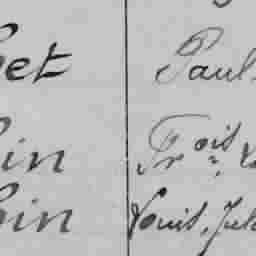 et Paul
in Fr.ois
in Louis, Jul